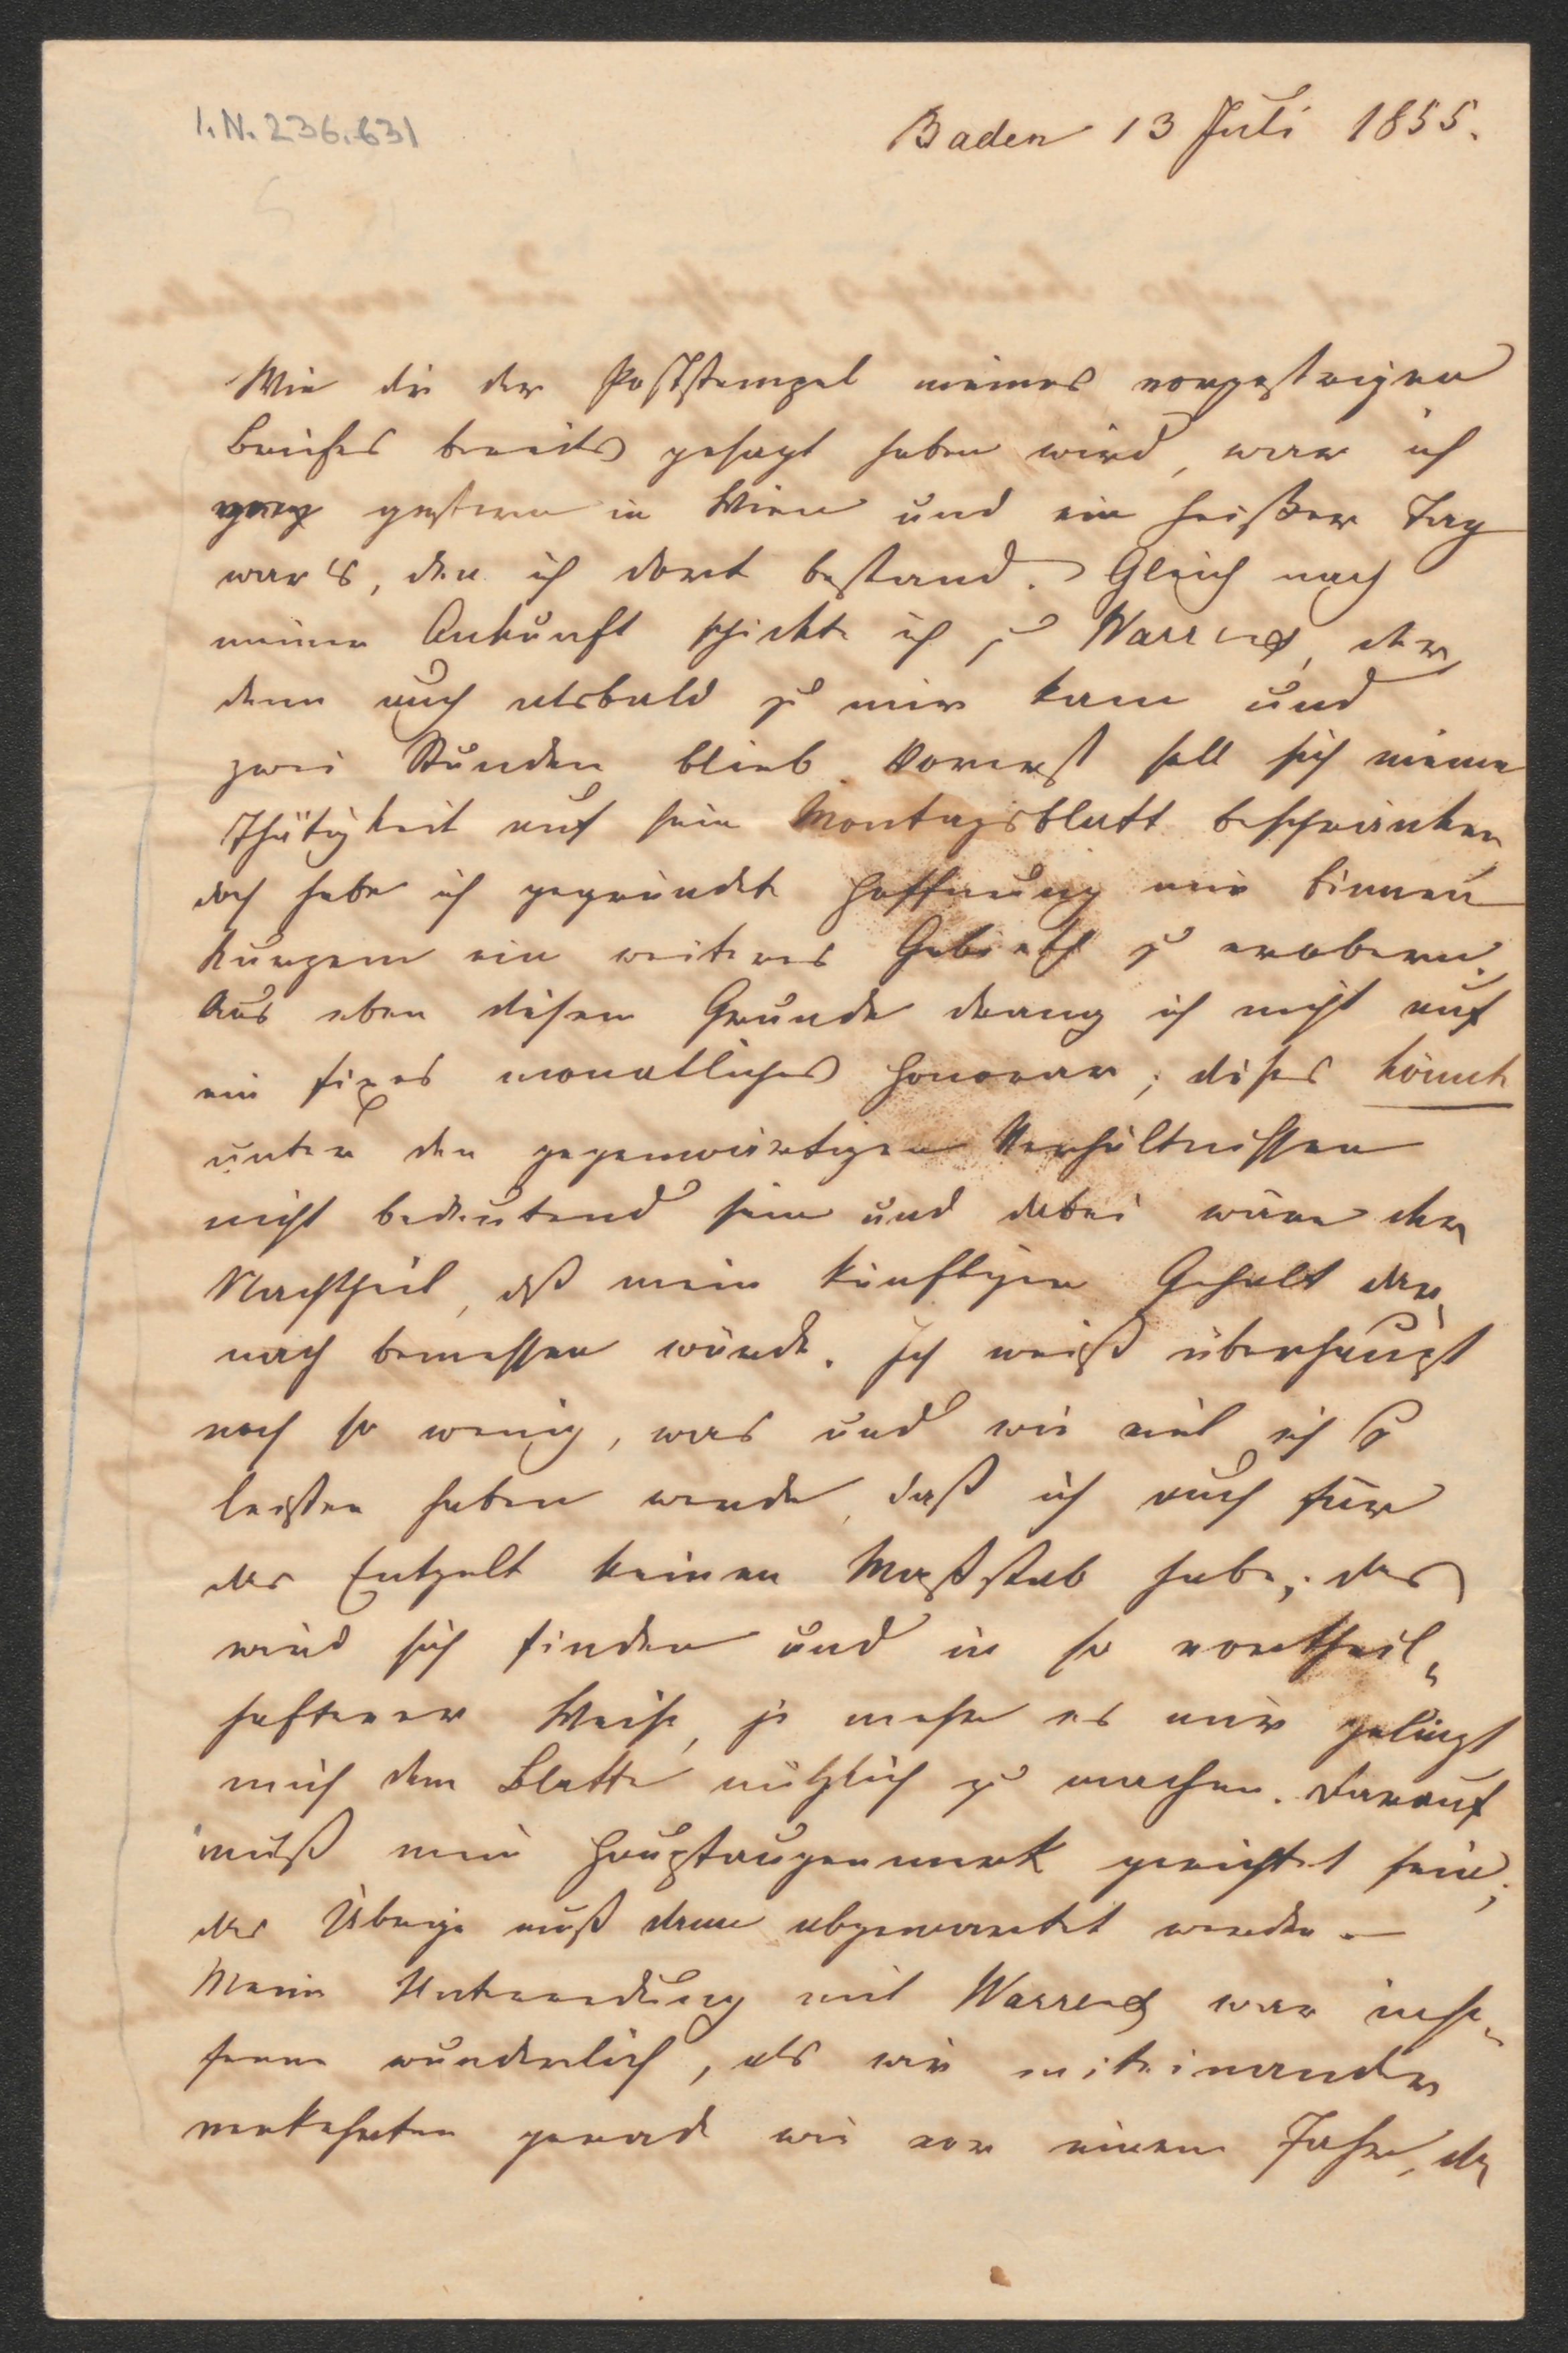 I.N. 236.631
Baden 13 Juli 1855.
Wie dir der Poststempel meines vorgestrigen
Briefes bereits gesagt haben wird, war ich
gestern in Wien und ein heißer Tag
war es, den ich dort bestand. Gleich nach
meiner Ankunft schickte ich zu Warrens, der
denn auch alsbald zu mir kam und
zwei Stunden blieb. Vorerst soll sich meine
Thätigkeit auf sein Montagsblatt beschränken
doch habe ich gegründete Hoffnung mir binnen
Kurzem ein weiteres Gebieth zu erobern.
Aus eben diesem Grunde drang ich nicht auf
ein fixes monatliches Honorar; dieses könnte
unter den gegenwärtigen Verhältnissen
nicht bedeutend sein und dabei wäre der
Nachtheil, daß mein künftiger Gehalt dar„
nach bemessen würde. Ich weiß überhaupt
noch so wenig, was und wie viel ich zu
leisten haben werde, daß ich auch für
das Entgelt keinen Maßstab habe; das
wird sich finden und in so vortheil„
hafterer Weise, je mehr es mir gelingt
mich dem Blatte nützlich zu machen. Darauf
muß mein Hauptaugenmerk gerichtet sein;
das Übrige muß dann abgewartet werden. —
Meine Unterredung mit Warrens war inso„
ferne wunderlich, als wir miteinander
verkehrten gerade wie vor einem Jahr, da